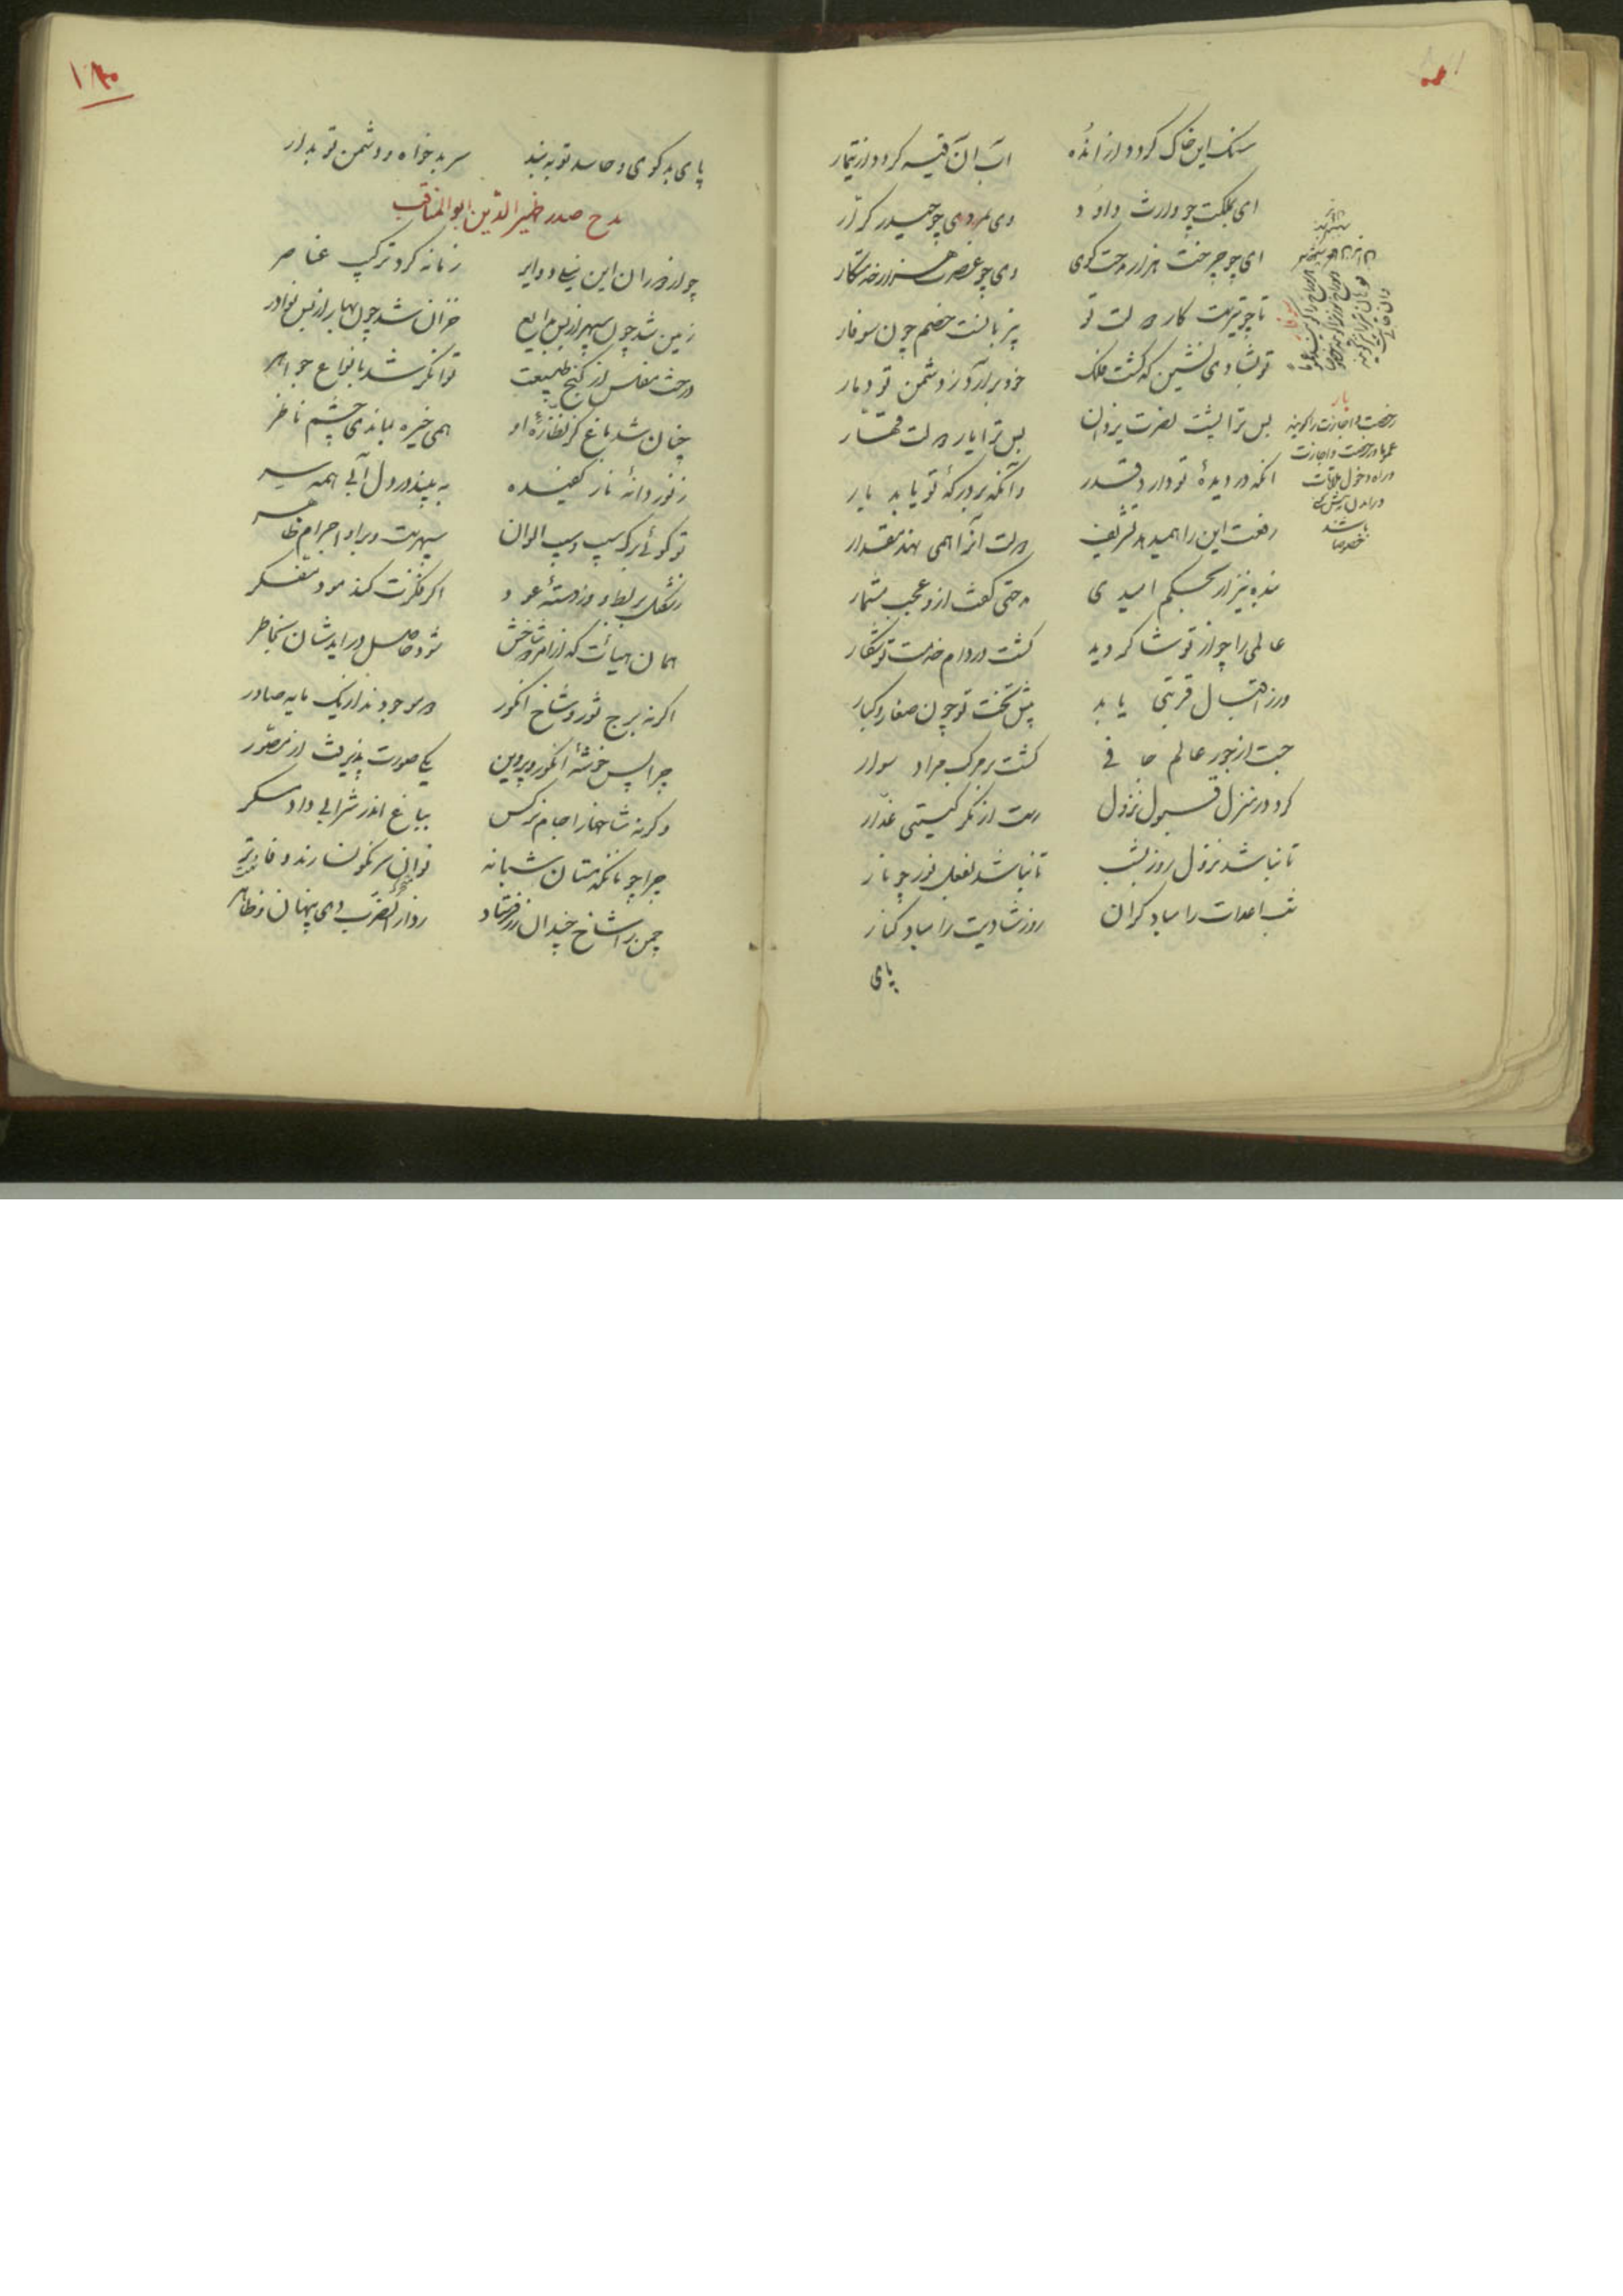 سنک این خاک کردد از انده    اب آن آتیه کردد از تیمار
ای بملکت چو وارث داود    وی بمردی چو حیدر کرّار
ای چو چرخت هزار مدحت کوی    وی چو عصرت هزار خدمتکار
تا چو تیرست کار دولت تو    تیز بانست خصم چون سوفار
تو بشادی نشین که کشت فلک    خود برآرد ز دشمن تو دمار
بس ترا پشت نصرت یزدان    بس ترا یار دولت قهّار
انکه در دیدهٔ تو دارد قدر    وانکه بر درکه تو یابد بار
رفعت این را همیدهد تشریف    دولت آنرا همی نهد مقدار
بنده نیز ار بحکم امیدی    مدحتی کفت ازو عجب مشمار
عالمی را چو از تو شاکر دید    کشت در دام خدمت تو شکار
ورز اقبال قربتی یابد    پیش تخت تو چون صغار و کبار
جست از جور عالم جافی    کشت بر مرکب مراد سوار
کرد در منزل قبول نزول    رست از مکر کیتی غدّار
تا نباشد نزول روز بشب    تا نباشد بفعل نور چو نار
شب اعدات را مباد کران    روز شادیت را مباد کنار
پای
بار
رخصت و اجازت را کویند
عموما و رخصت و اجازت
در راه و دخول ملاقات
باشد
خصوصا
پای بدکوی و حاسد تو به بند    سر بدخواه و دشمن تو بدار
مدح صدر ظهیر الدّین ابو المناقب
چو از دوران این نیلی دوایر    زمانه کرد ترکیب عناصر
زمین شد چون سپهر از بس بدایع    خزان شد چون بهار از بس نوادر
درخت مفلس از کنج طبیعت    توانکر شد بانواع جواهر
چنان شد باغ کز نظّارهٔ او    همی خیره بماند چشم ناظر
ز نور دانهٔ نار کفیده    به بیند در دل آبی همه سر
تو کوئی برک سیب و سیب الوان    سپهرست و برو اجرام ظاهر
ز شکل بربط و وز دستهٔ عود    اکر فکرت کند مرد مفکر
همان هیأت که از امرود و شاخش    شود حاصل در ایدشان بخاطر
اکر نه برج ثور و شاخ انکور    دو موجودند از یک مایه صادر
چرا پس خوشهٔ انکور و پروین    یکی صورت پذیرفت از مصوّر
وکر نه شاخها را جام نرکس    بباغ اندر شرابی داد مسکر
چرا چونانکه مستان شبانه    نوان و سرنکونسارند و فاتر
چمن را شاخ چندان زر فرستاد    ز دار الضرب دی پنهان و ظاهر